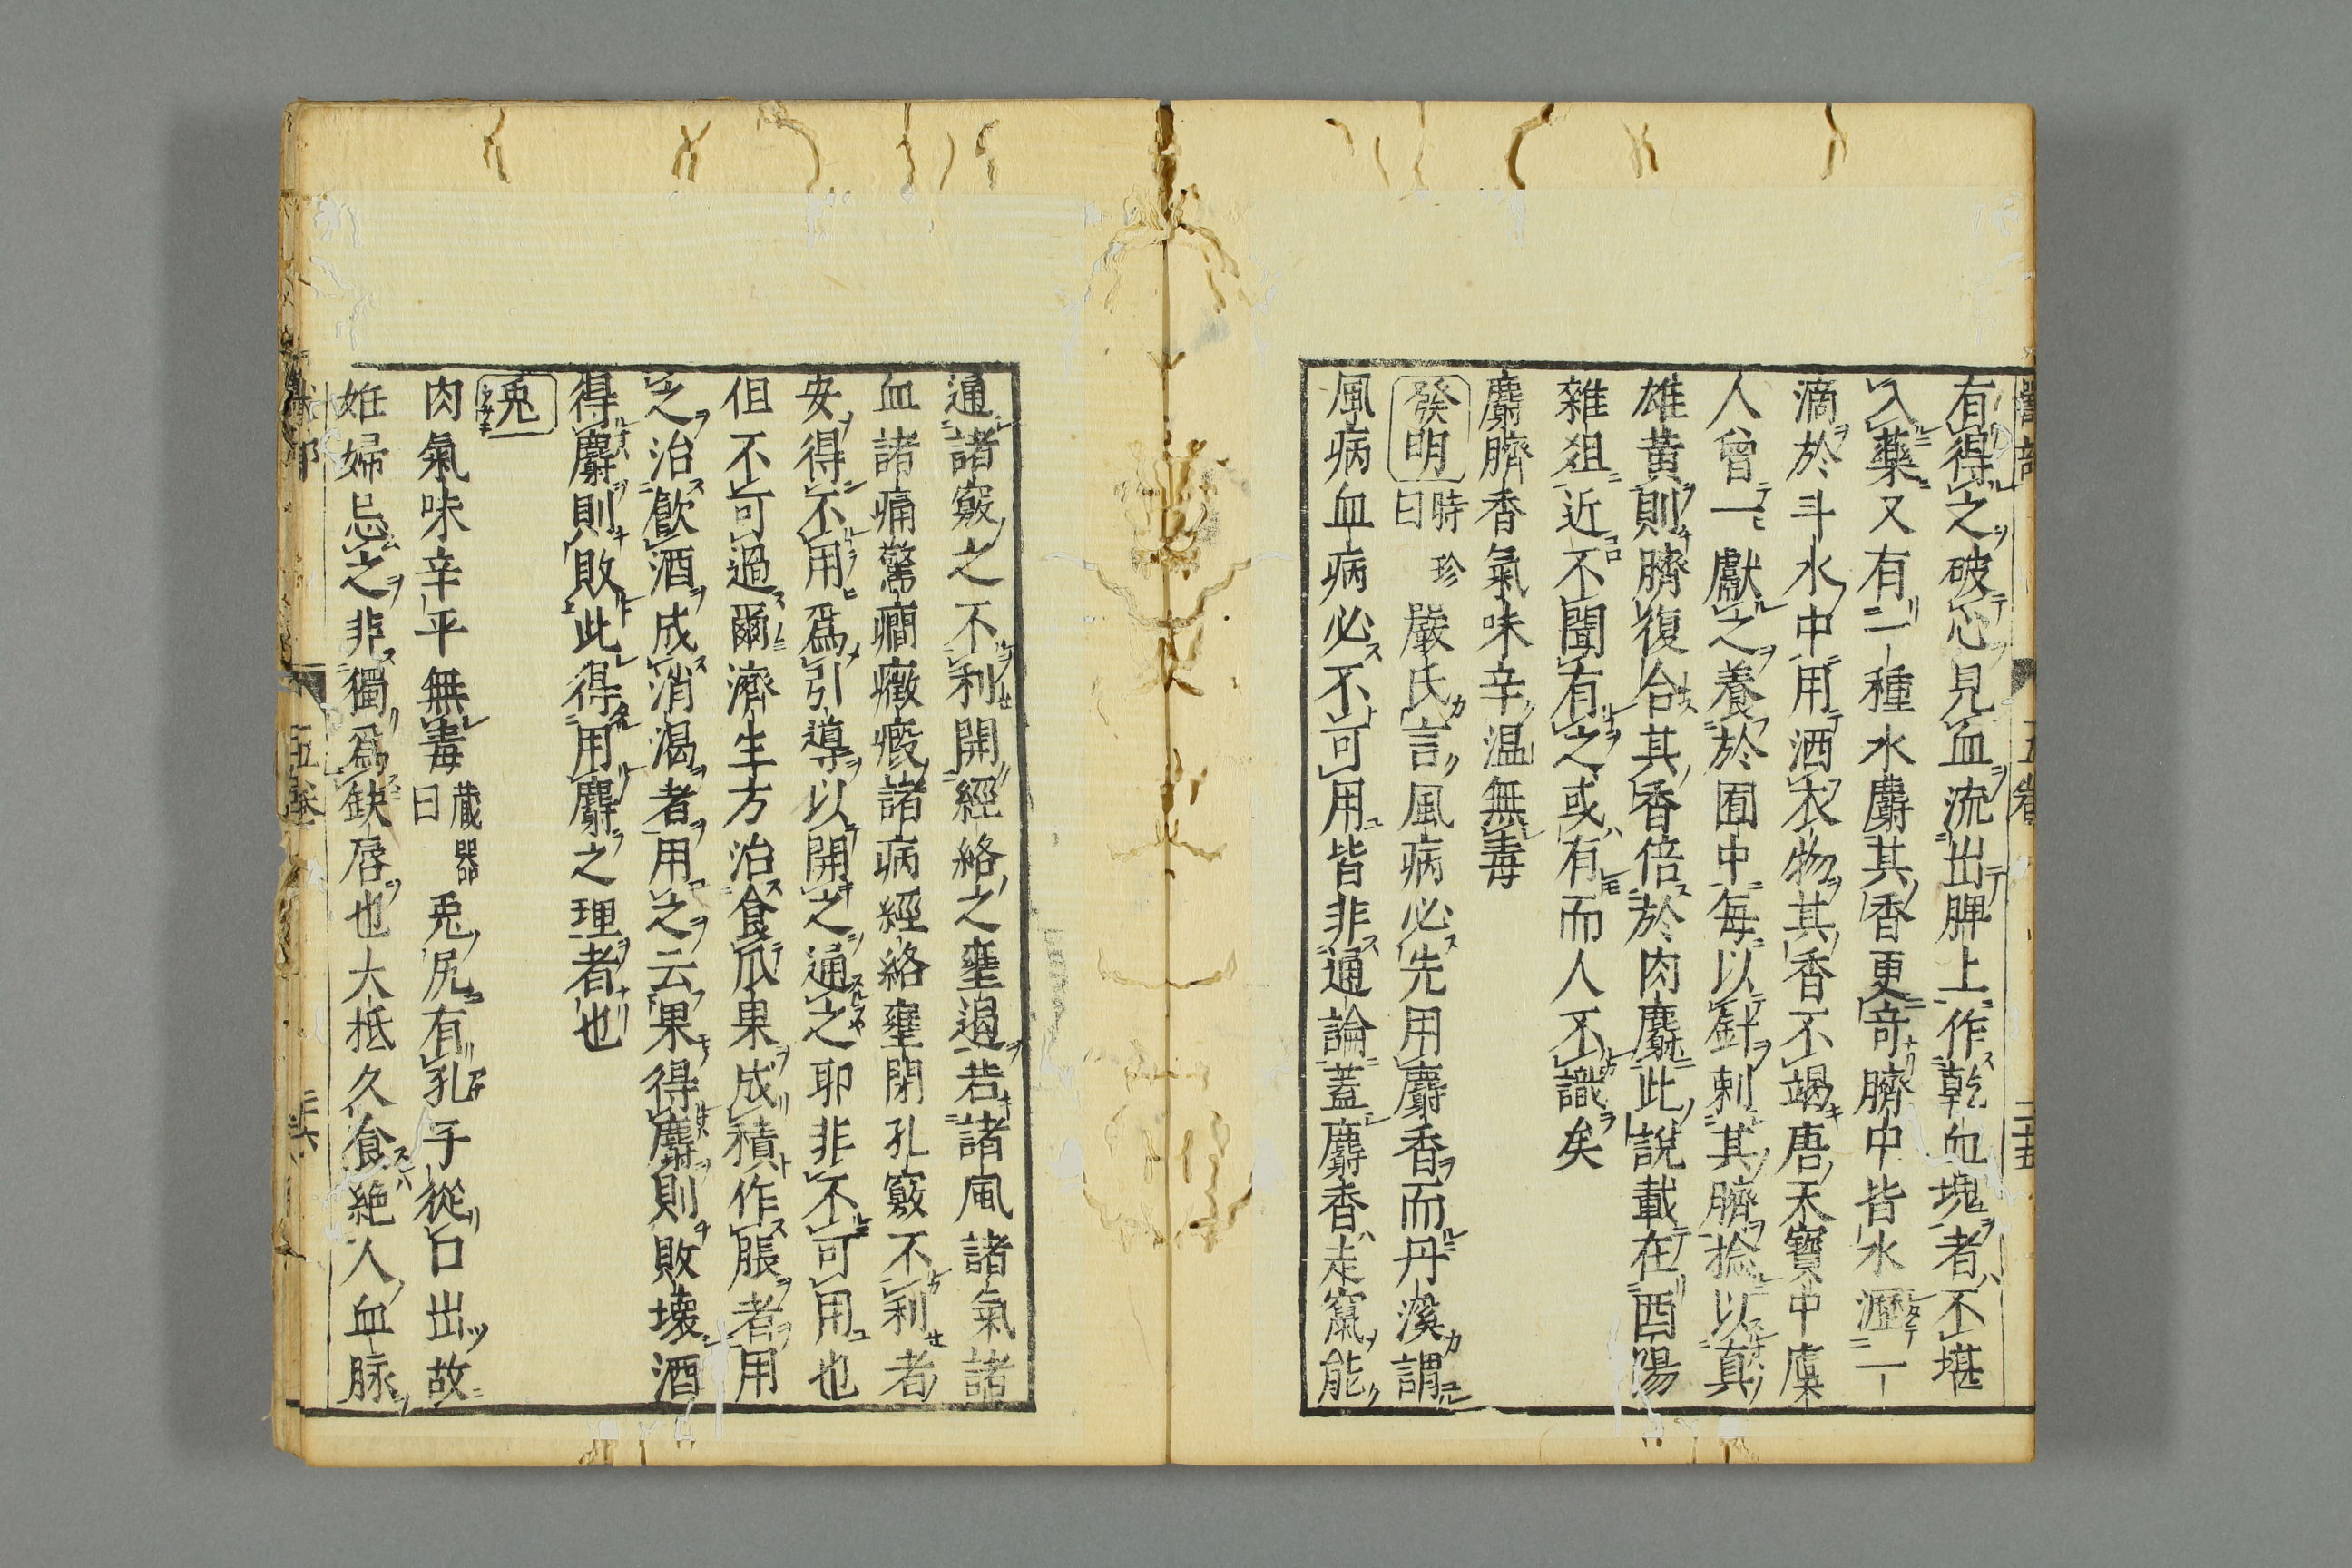 有得之破心見血流出脾上作乾血塊者不堪
入藥又有一種水麝其香更奇臍中皆水瀝一
滴於斗水中用洒衣物其香不竭唐天寶中虞
人曾一獻之養於囿中每以針刺其臍捻以真
雄黃則臍復合其香倍於肉麝此說載在酉陽
雜俎近不聞有之或有而人不識矣
麝臍香氣味辛温無毒
發明 時珍曰 嚴氏言風病必先用麝香而丹溪謂
風病血病必不可用皆非通論蓋麝香走竄能
通諸竅之不利開經絡之壅遏若諸風諸氣諸
血諸痛驚癇癥瘕諸病經絡壅閉孔竅不利者
安得不用為引導以開之通之耶非不可用也
但不可過爾濟生方治食瓜果成積作脹者用
之治飲酒成消渴者用之云果得麝則敗壊酒
得麝則敗此得用麝之理者也
兎
肉氣味辛平無毒 蔵器曰 兎尻有孔子從口出故
姙婦忌之非獨為缺唇也大抵久食絶人血脉
五卷